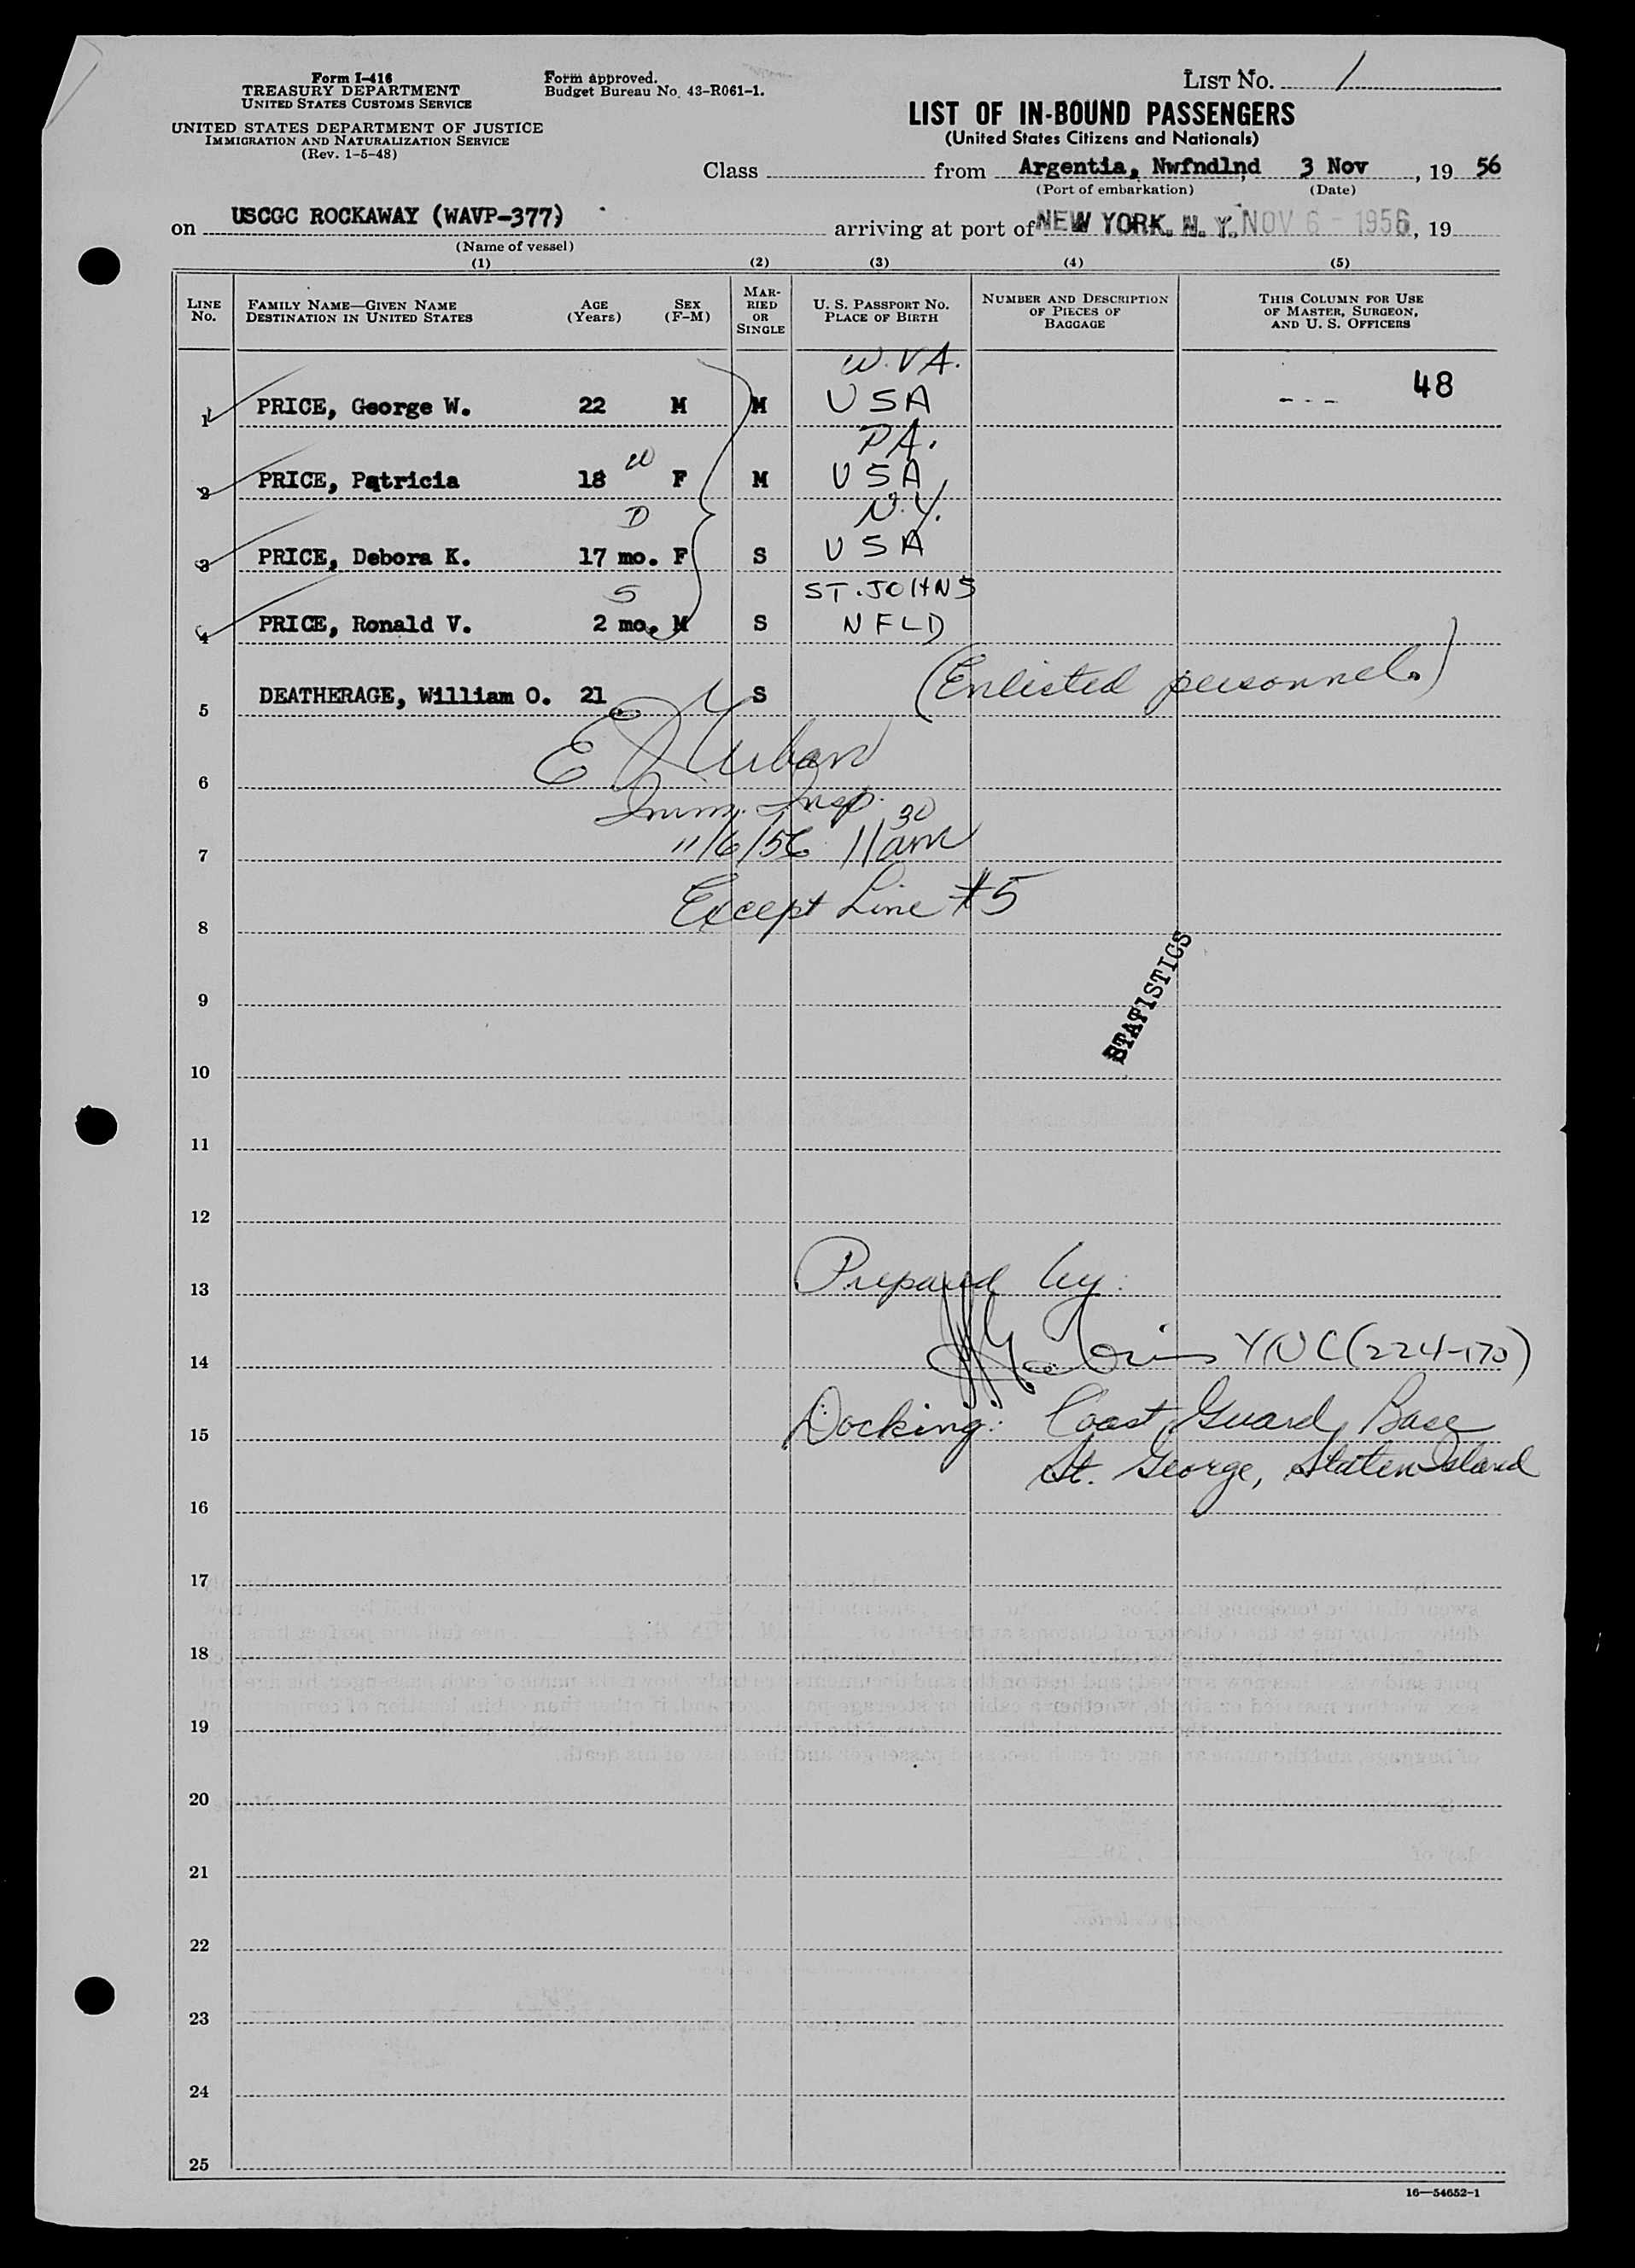 Form I-416
TREASURY DEPARTMENT
UNITED STATES CUSTOMS SERVICE
UNITED STATES DEPARTMENT OF JUSTICE
IMMIGRATION AND NATURALIZATION SERVICE
(Rev. 1-5-48)
Form approved.
Budget Bureau No. 43-R061-1.
LIST No. 1
LIST OF IN-BOUND PASSENGERS
(United States Citizens and Nationals)
Class from Argentia, Nwfndlnd 3 Nov , 19 56
(Port of embarkation) (Date)
on USCGC ROCKAWAY (WAVP-377) arriving at port of NEW YORK. N. Y. NOV 6 - 1956, 19
(Name of vessel)
(1) (2) (3) (4) (5)
LINE No. FAMILY NAME—GIVEN NAME DESTINATION IN UNITED STATES AGE (Years) SEX (F-M) MARRIED OR SINGLE U. S. PASSPORT No. PLACE OF BIRTH NUMBER AND DESCRIPTION OF PIECES OF BAGGAGE THIS COLUMN FOR USE OF MASTER, SURGEON, AND U. S. OFFICERS
W. VA.
1 PRICE, George W. 22 M M USA --- 48
PA.
2 PRICE, Patricia 18 W F M USA
N.Y.
D
3 PRICE, Debora K. 17 mo. F S USA
S ST. JOHNS
4 PRICE, Ronald V. 2 mo. M S NFLD
5 DEATHERAGE, William O. 21 S (Enlisted personnel.)
6
Imm. Insp.
7 11/6/56 11 30 am
8 Except Line #5
STATISTICS
9
10
11
12
13 Prepared by:
14 YNC (224-170)
15 Docking: Coast Guard Base
St. George, Staten Island
16
17
18
19
20
21
22
23
24
25
16—54652-1